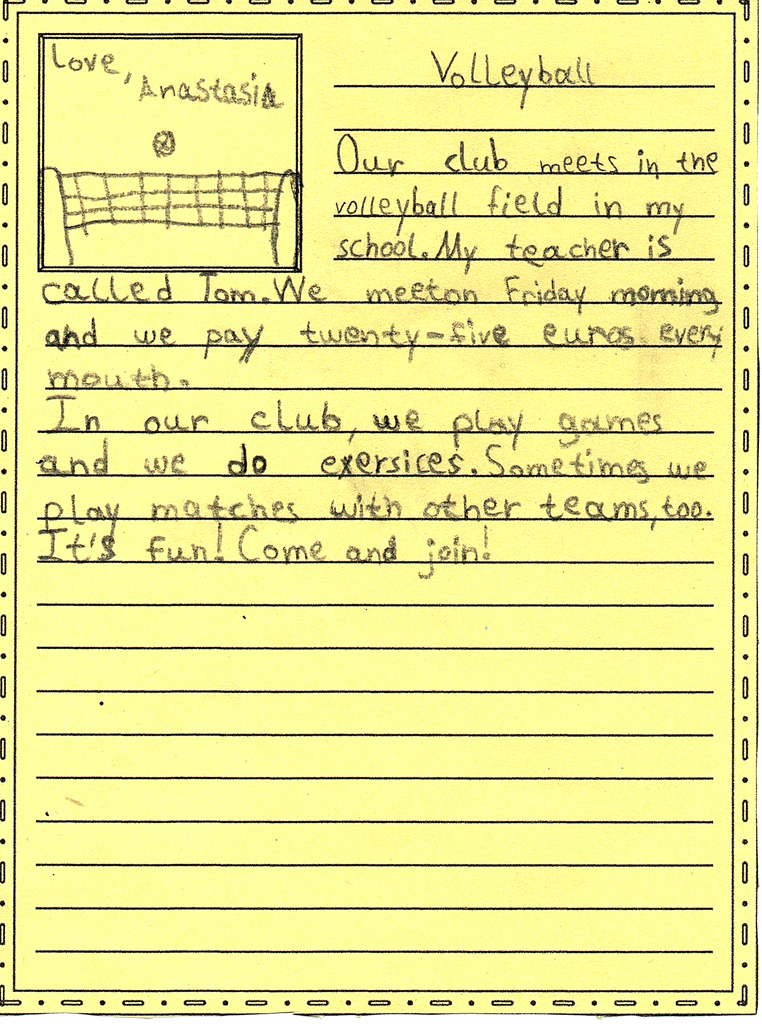 Love,
Anastasia
Volleyball
Our club meets in the
volleyball field in my
school. My teacher is
called Tom. We meeton Friday morning
and we pay twenty-five euros every
mouth.
In our club, we play games
and we do exersices. Sometimes we
play matches with other teams, too.
It's fun! Come and join!